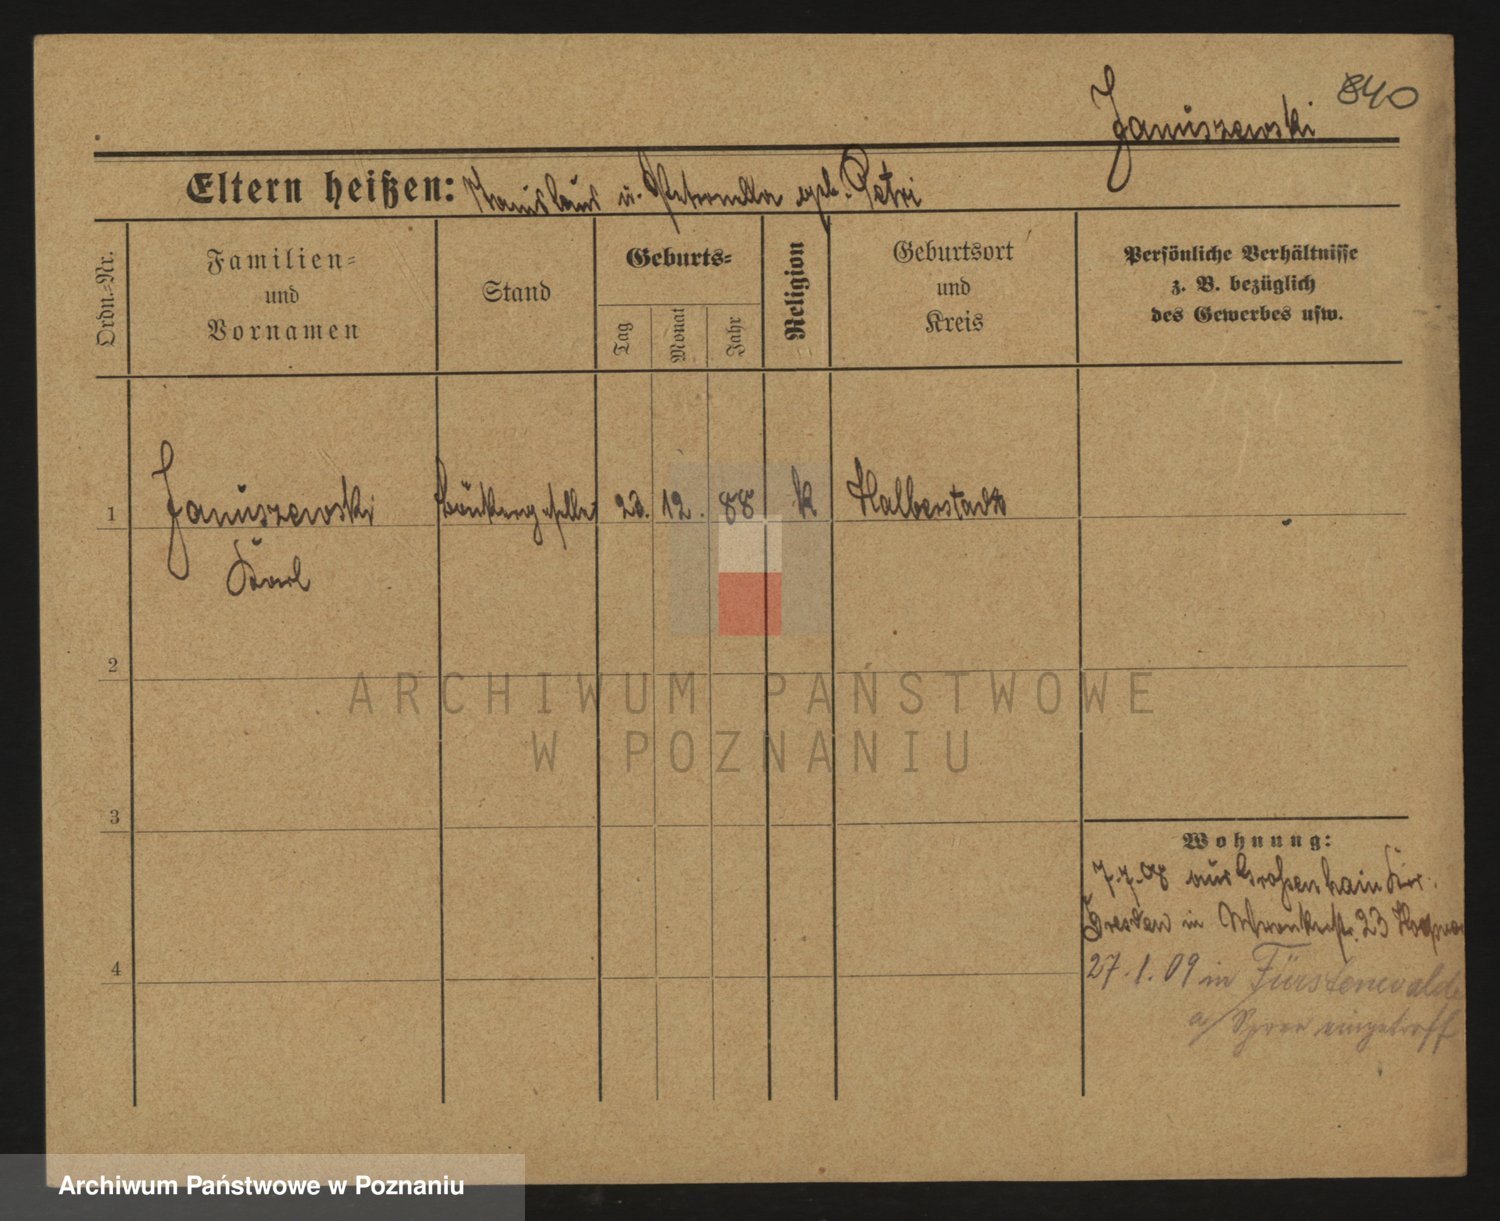 840
Januszewski
Eltern heißen: Stanislaus u. Petronella geb. Petri
Ordn.-Nr.
Familien-
und
Vornamen
Stand
Geburts-
Tag
Monat
Jahr
Religion
Geburtsort
und
Kreis
Persönliche Verhältnisse
z. B. bezüglich
des Gewerbes usw.
1 Januszewski 23. 12. 88 k Halberstadt
Karl
2
ARCHIWUM PAŃSTWOWE
W POZNANIU
3
Wohnung:
7.7.08 aus Großenhain
Dresden in 23
4
27.1.09 in Fürstenwalde
a/ Spree eingetroff
Archiwum Państwowe w Poznaniu